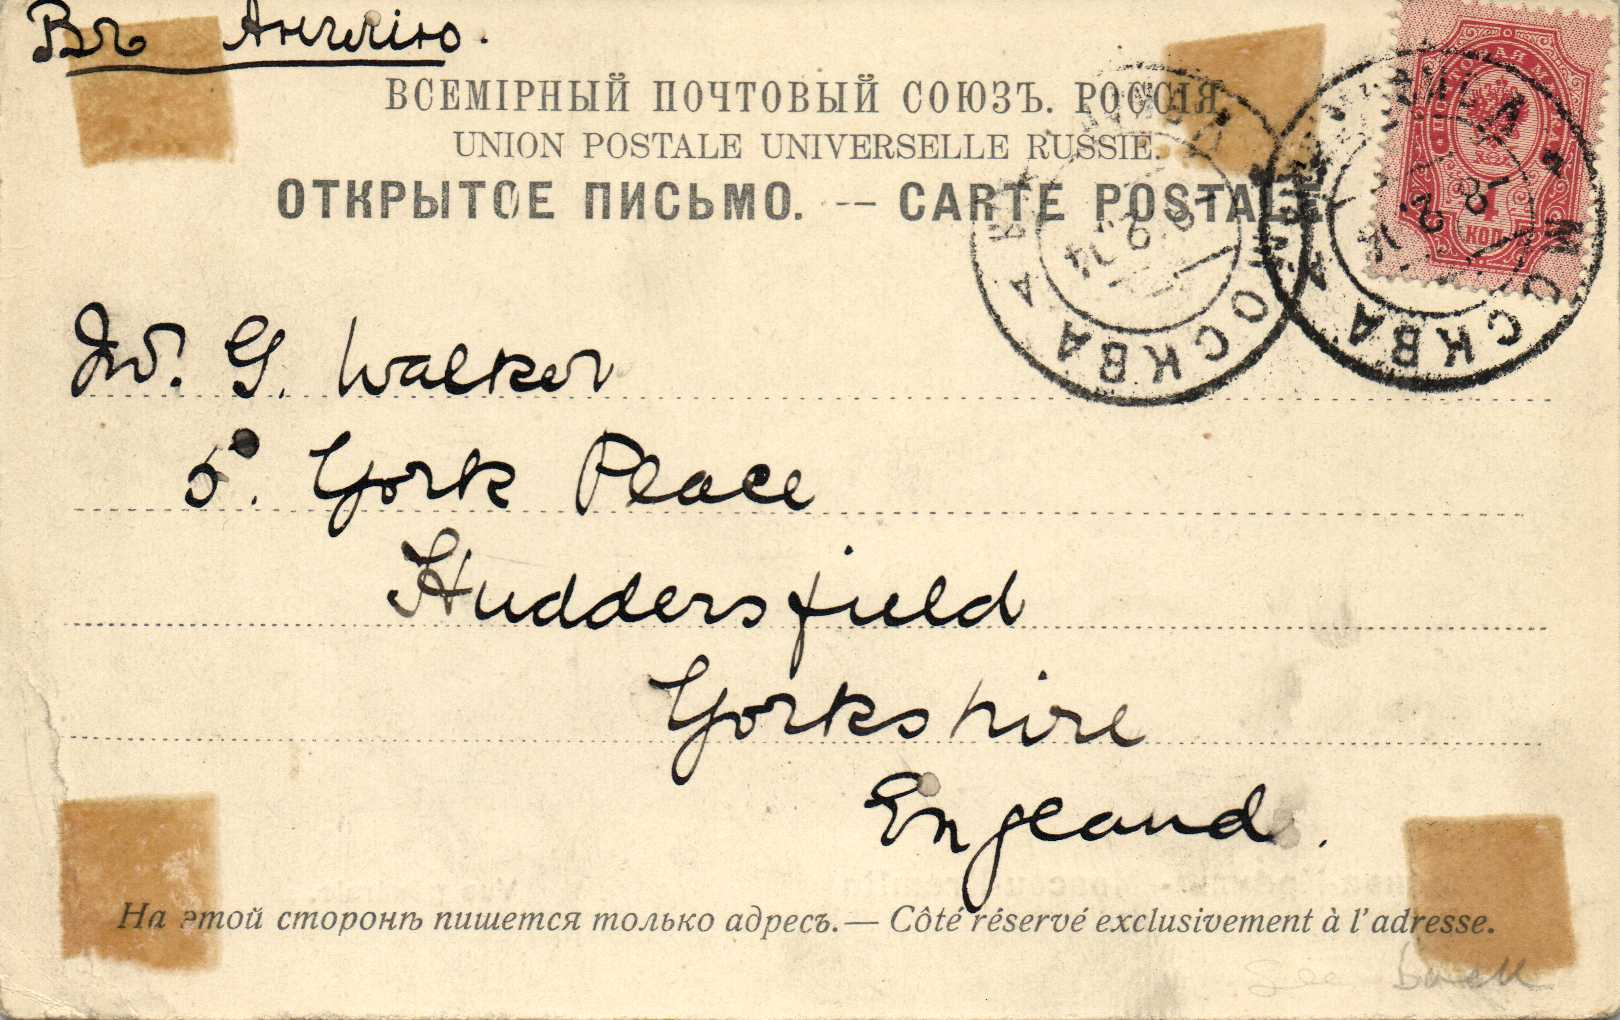 Въ Англію.
ВСЕМІРНЫЙ ПОЧТОВЫЙ СОЮЗЪ. РОССІЯ.
UNION POSTALE UNIVERSELLE RUSSIE.
ОТКРЫТОЕ ПИСЬМО. -- CARTE POSTALE
МОСКВА
МОСКВА
КОП
G. Walker
5. York Place
Huddersfield
Yorkshire
England.
На этой сторонѣ пишется только адресъ. — Côté réservé exclusivement à l'adresse.